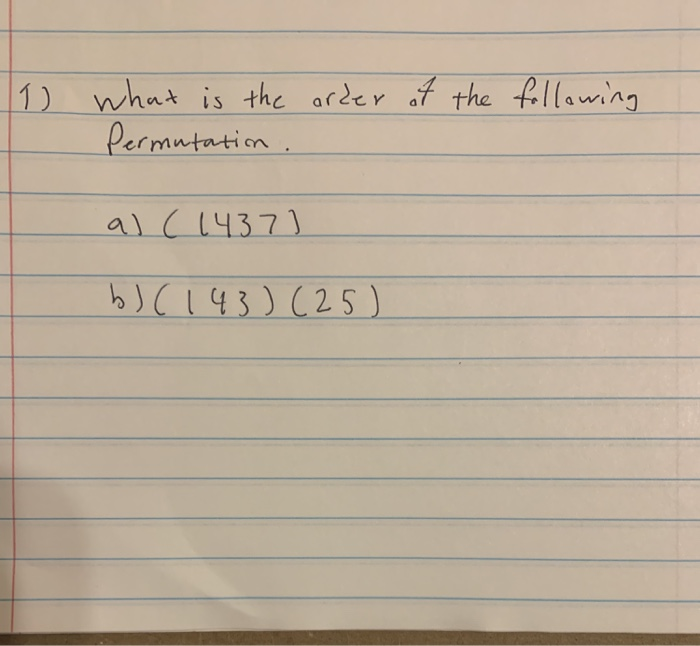 1) what is the order of the following
Permutation.
a) (1437)
b) (143)(25)